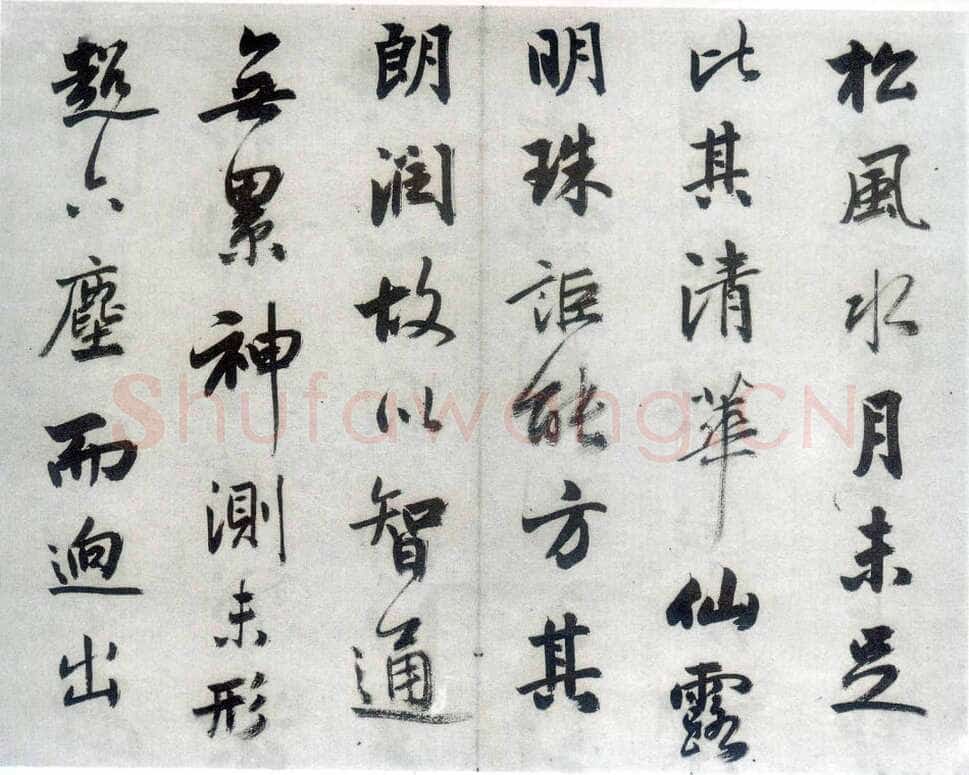 松風水月未足
比其清華仙露
明珠詎能方其
朗潤故以智通
無累神測未形
超六塵而迥出
Shufawang.CN